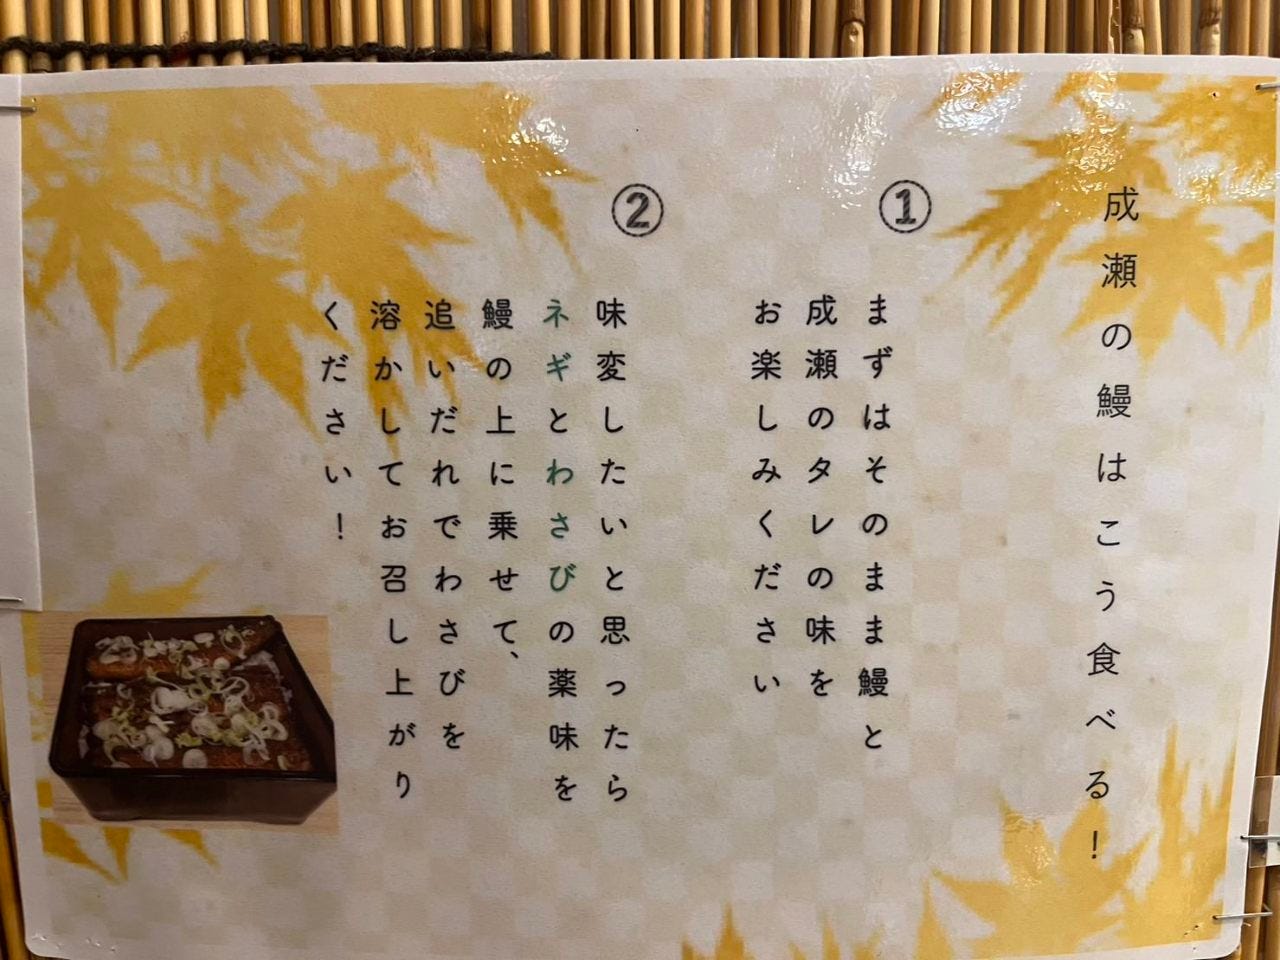 成瀬の鰻はこう食べる!
①
まずはそのまま鰻と
成瀬のタレの味を
お楽しみください
②
味変したいと思ったら
ネギとわさびの薬味を
鰻の上に乗せて、
追いだれでわさびを
溶かしてお召し上がり
ください!